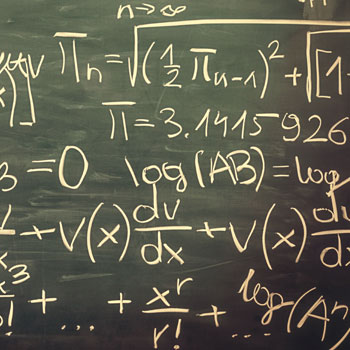 n→∞
π̅n = √(½ πn-1)² + √[1-
π = 3.1415926
3 = 0 log(AB) = log
+ v(x) dv/dx + v(x) du
x³/3! + ... + xʳ/r! + ...
log(Aⁿ)